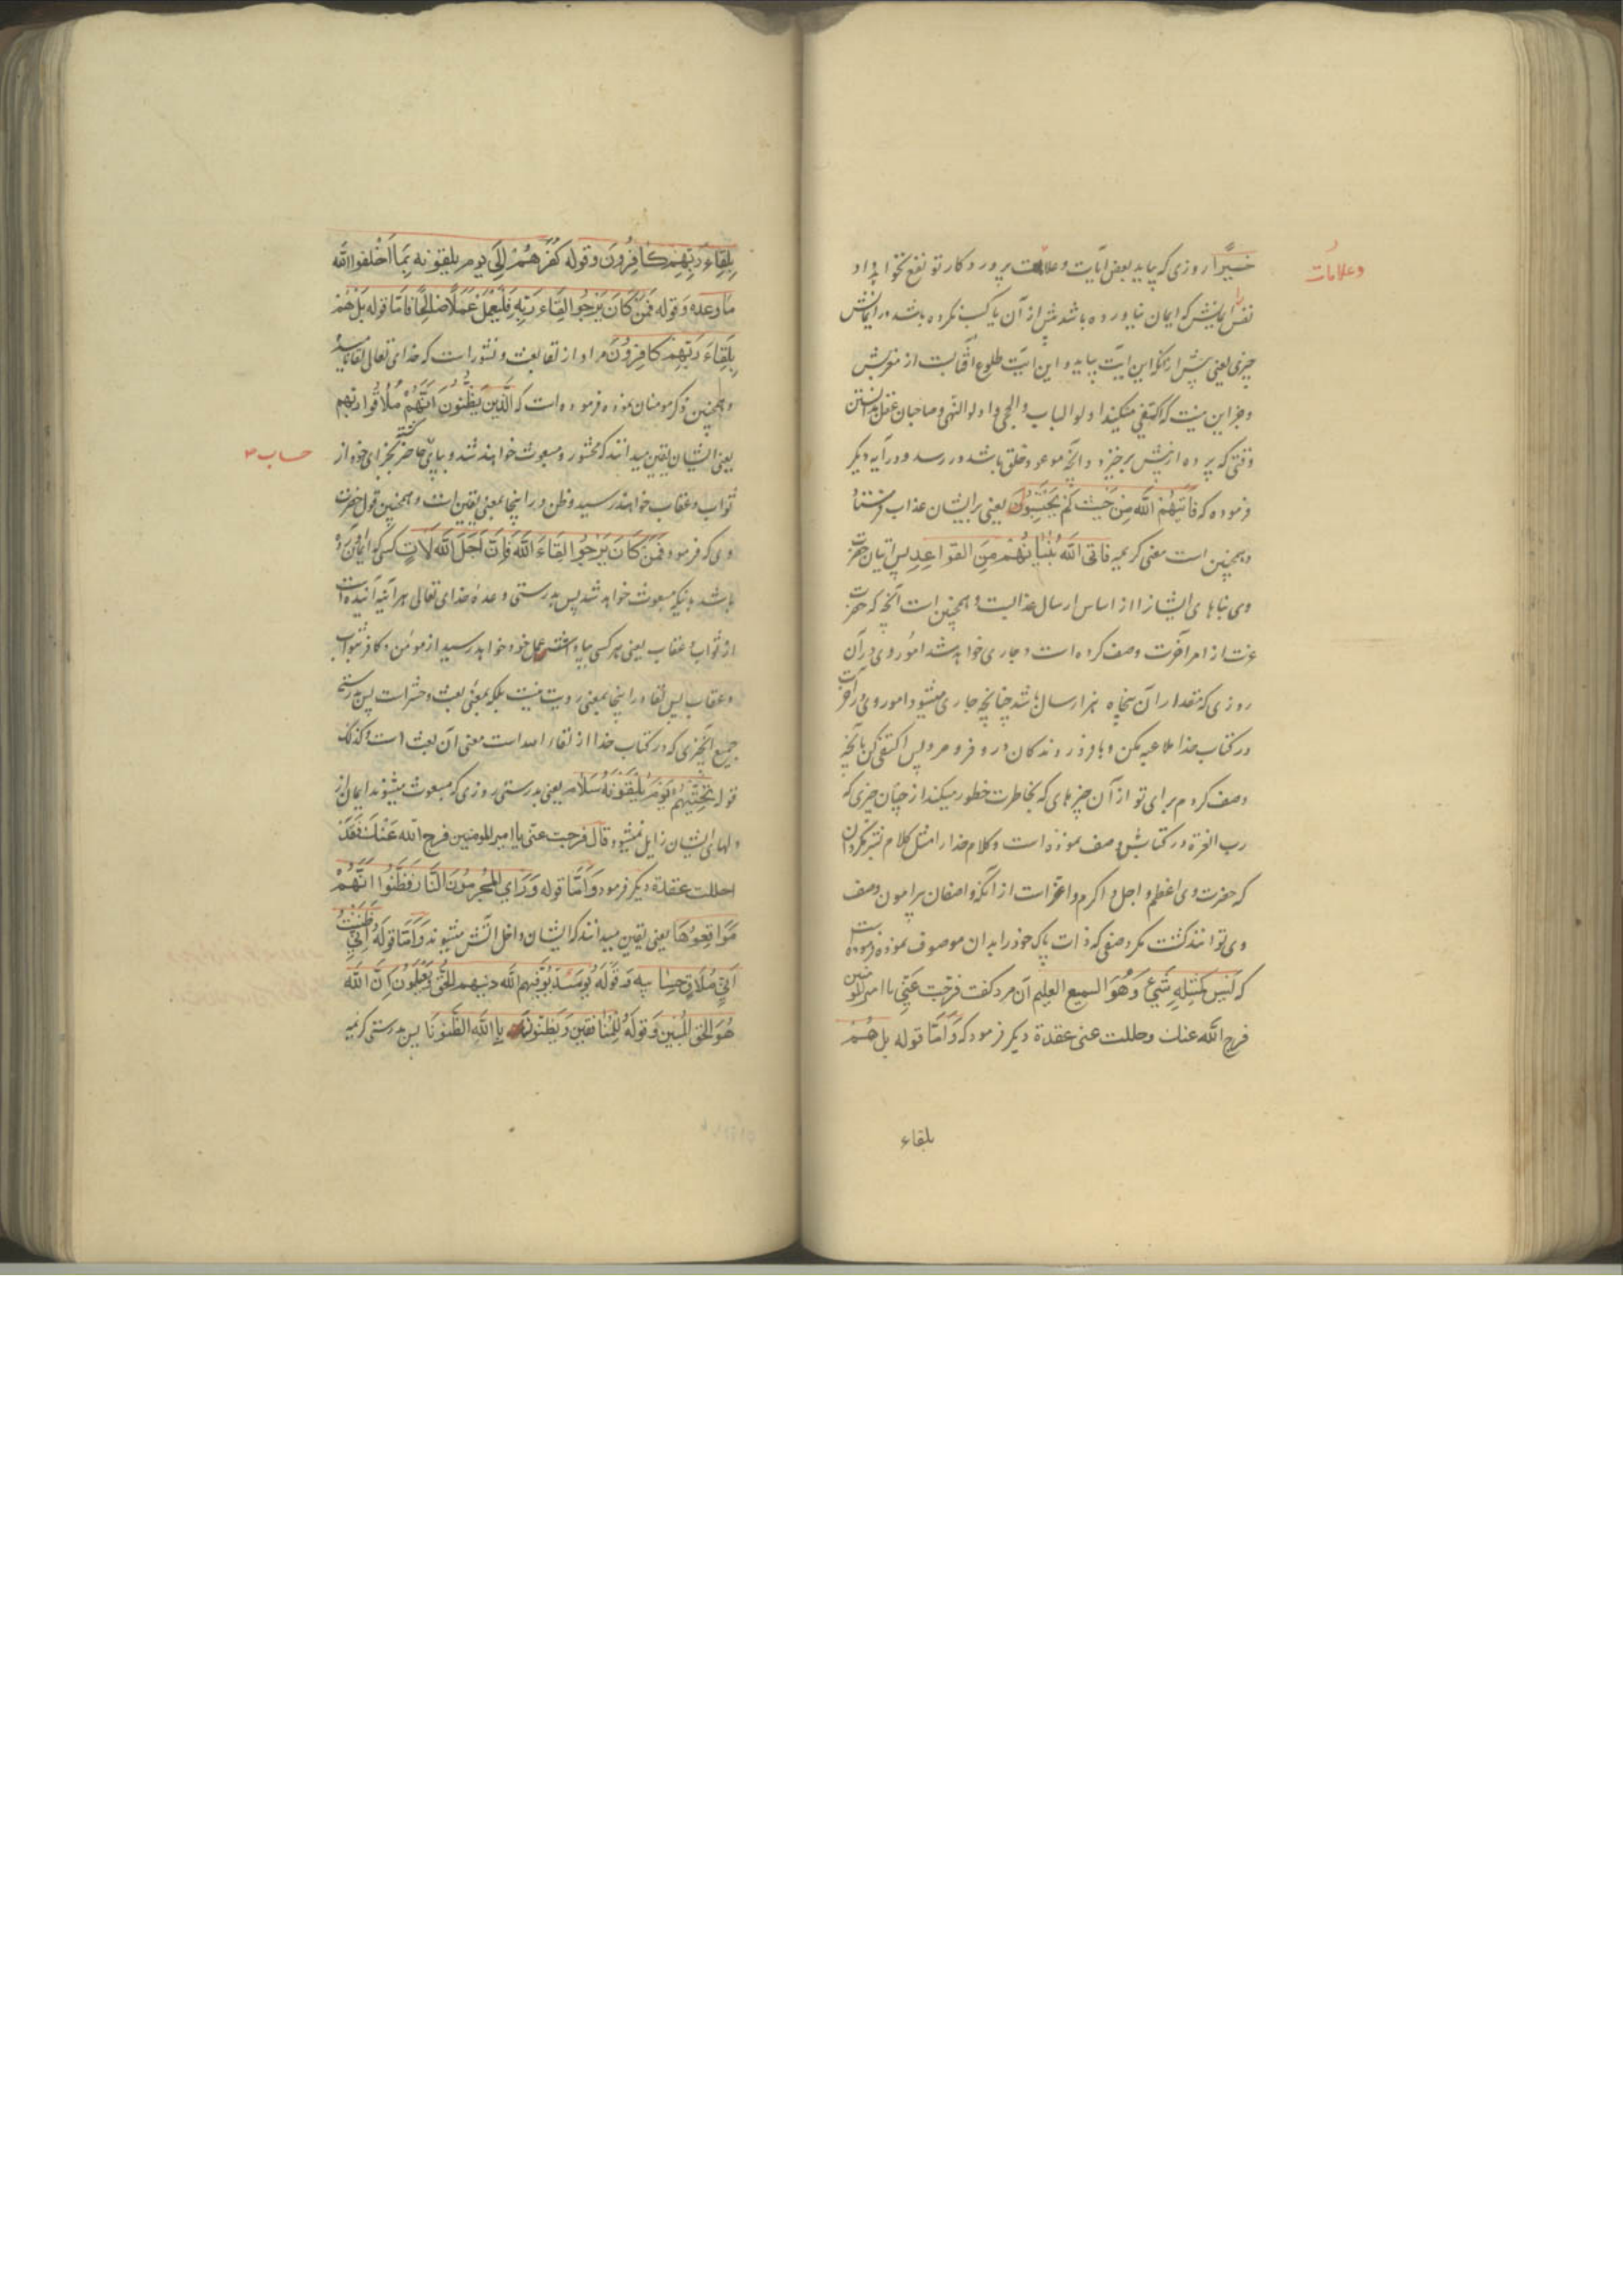 خیرا روزی که بیاید بعض ایات و علامت پروردکار تو نفع نخواهد داد
وعلامات
نفس را ایمانش که ایمان نیاورده باشد پیش از آن یا کسب نکرده باشد در ایمانش
چیزی یعنی پیش از آنکه این آیت بیاید و این آیت طلوع آفتابست از مغربش
و جز این نیست که اکتفی میکیند اولو الباب و الحجی و اولو النهی و صاحبان عقل بدانستن
وقتی که پرده از پیش برخیزد و آنچه موعود خلق باشد در رسد و در آیه دیکر
فرموده که فَاَتیٰهُمُ اللّه مِنْ حَیْثُ لَمْ یَحْتَسِبُوا یعنی بر ایشان عذاب فرستاد
و همچنین است معنی کریمه فاتی اللّه بُنْیٰانَهُمْ مِنَ القوٰاعِدِ پس اتیان حضرت
وی بناهای ایشانرا از اساس ارسال عذابست و همچنین است آنچه که حضرت
عزت از امر آخرت وصف کرده است و جاری خواهد شد امور وی در آن
روزی که مقدار آن پنجاه هزار سال باشد چنانچه جاری میشود امور وی در آخرت
در کتاب خدا ملاعبه مکن و با فرو روندکان در و فرو مرو پس اکتفی کن بآنچه
وصف کردم برای تو از آن چیزهای که بخاطرت خطور میکند از چنان چیزی که
رب العزة در کتابش وصف نموده است و کلام خدا را مثل کلام بشر مکردان
که حضرت وی اعظم و اجل و اکرم و اعز است از آنکه واصفان پیرامون وصف
وی توانند کشت مکر وصفی که ذات پاک خود را بدان موصوف نموده فرموده است
که لَیْسَ کَمِثْلِهِ شَیْءٌ وَهُوَ السمیع العلیم آن مرد کفت فرّجت عَنّی یا امیر المومنین
فرج اللّه عنک وحللت عنی عقدة دیکر فرمود که وَاَمّٰا قوله بل هُمْ
بلقاء
بِلِقٰاءِ رَبِّهِمْ کٰافِرُونَ وقوله کُفْرَهُمْ اِلٰی یوم یلقونه بِمٰا اَخْلَفوا اللّه
مٰا وعدوه وَقوله فَمَنْ کٰانَ یَرْجُوا لِقٰاءَ رَبِّهِ فَلْیَعْمَلْ عَمَلًا صٰالِحًا فاَمّا قوله بَلْ هُمْ
بِلِقٰاءِ رَبِّهِمْ کافِرُونَ مراد از لقا بعث و نشور است که خدای تعالی لقا نامیده
و همچنین ذکر مومنان نموده فرموده است که الَّذینَ یَظُنُّونَ اَنَّهُمْ مُلٰاقُوا ربهم
یعنی ایشان یقین میدانند که محشور و مبعوث خواهند شد و بپای حاضر کشته بجزای خود از
حساب
ثواب و عقاب خواهند رسید و ظن در اینجا بمعنی یقین است و همچنین قول حضرت
وی که فرموده فَمَنْ کٰانَ یَرْجُوا لِقٰاءَ اللّه فَاِنَّ اَجَلَ اللّه لَاٰتٍ کسی که ایمان آورده
باشد باینکه مبعوث خواهد شد پس بدرستی وعدهٔ خدای تعالی هر آینه آینده است
از ثواب و عقاب یعنی هر کسی بپاداش عمل خود خواهد رسید از مؤمن و کافر بثواب
و عقاب پس لقا در اینجا بمعنی رویت نیست بلکه بمعنی بعث و حشر است پس بدرستی
جمیع آنچیزی که در کتاب خدا از لقاء اللّه است معنی آن بعث است و کذلک
قوله تَحِیَّتُهُمْ یَوْمَ یَلْقَوْنَهُ سَلٰام یعنی بدرستی روزی که مبعوث میشوند ایمان از
دلهای ایشان زایل نمیشود قال فرجت عنّی یا امیر المومنین فرج اللّه عَنْکَ فَقَدْ
احللت عقدة دیکر فرمود وَاَمّٰا قوله وَرَاَی المُجْرِمُونَ النّٰارَ فَظَنُّوا اَنَّهُمْ
مُوٰاقِعُوهٰا یعنی یقین میدانند که ایشان داخل آتش میشوند وَاَمّٰا قولَهُ اِنّی ظَنَنْتُ
اَنّی مُلٰاقٍ حِسٰابِیَه وَقَوْلَهُ یَوْمَئِذٍ یُوَفّیهِمُ اللّه دینهم الحَقَّ وَیَعْلَمُونَ اَنَّ اللّه
هُوَ الحَقُّ المُبین وَقولهُ لِلْمُنٰافِقین وَیَظُنّونَ بِاللّه الظُّنُونَا پس بدرستی کریمه